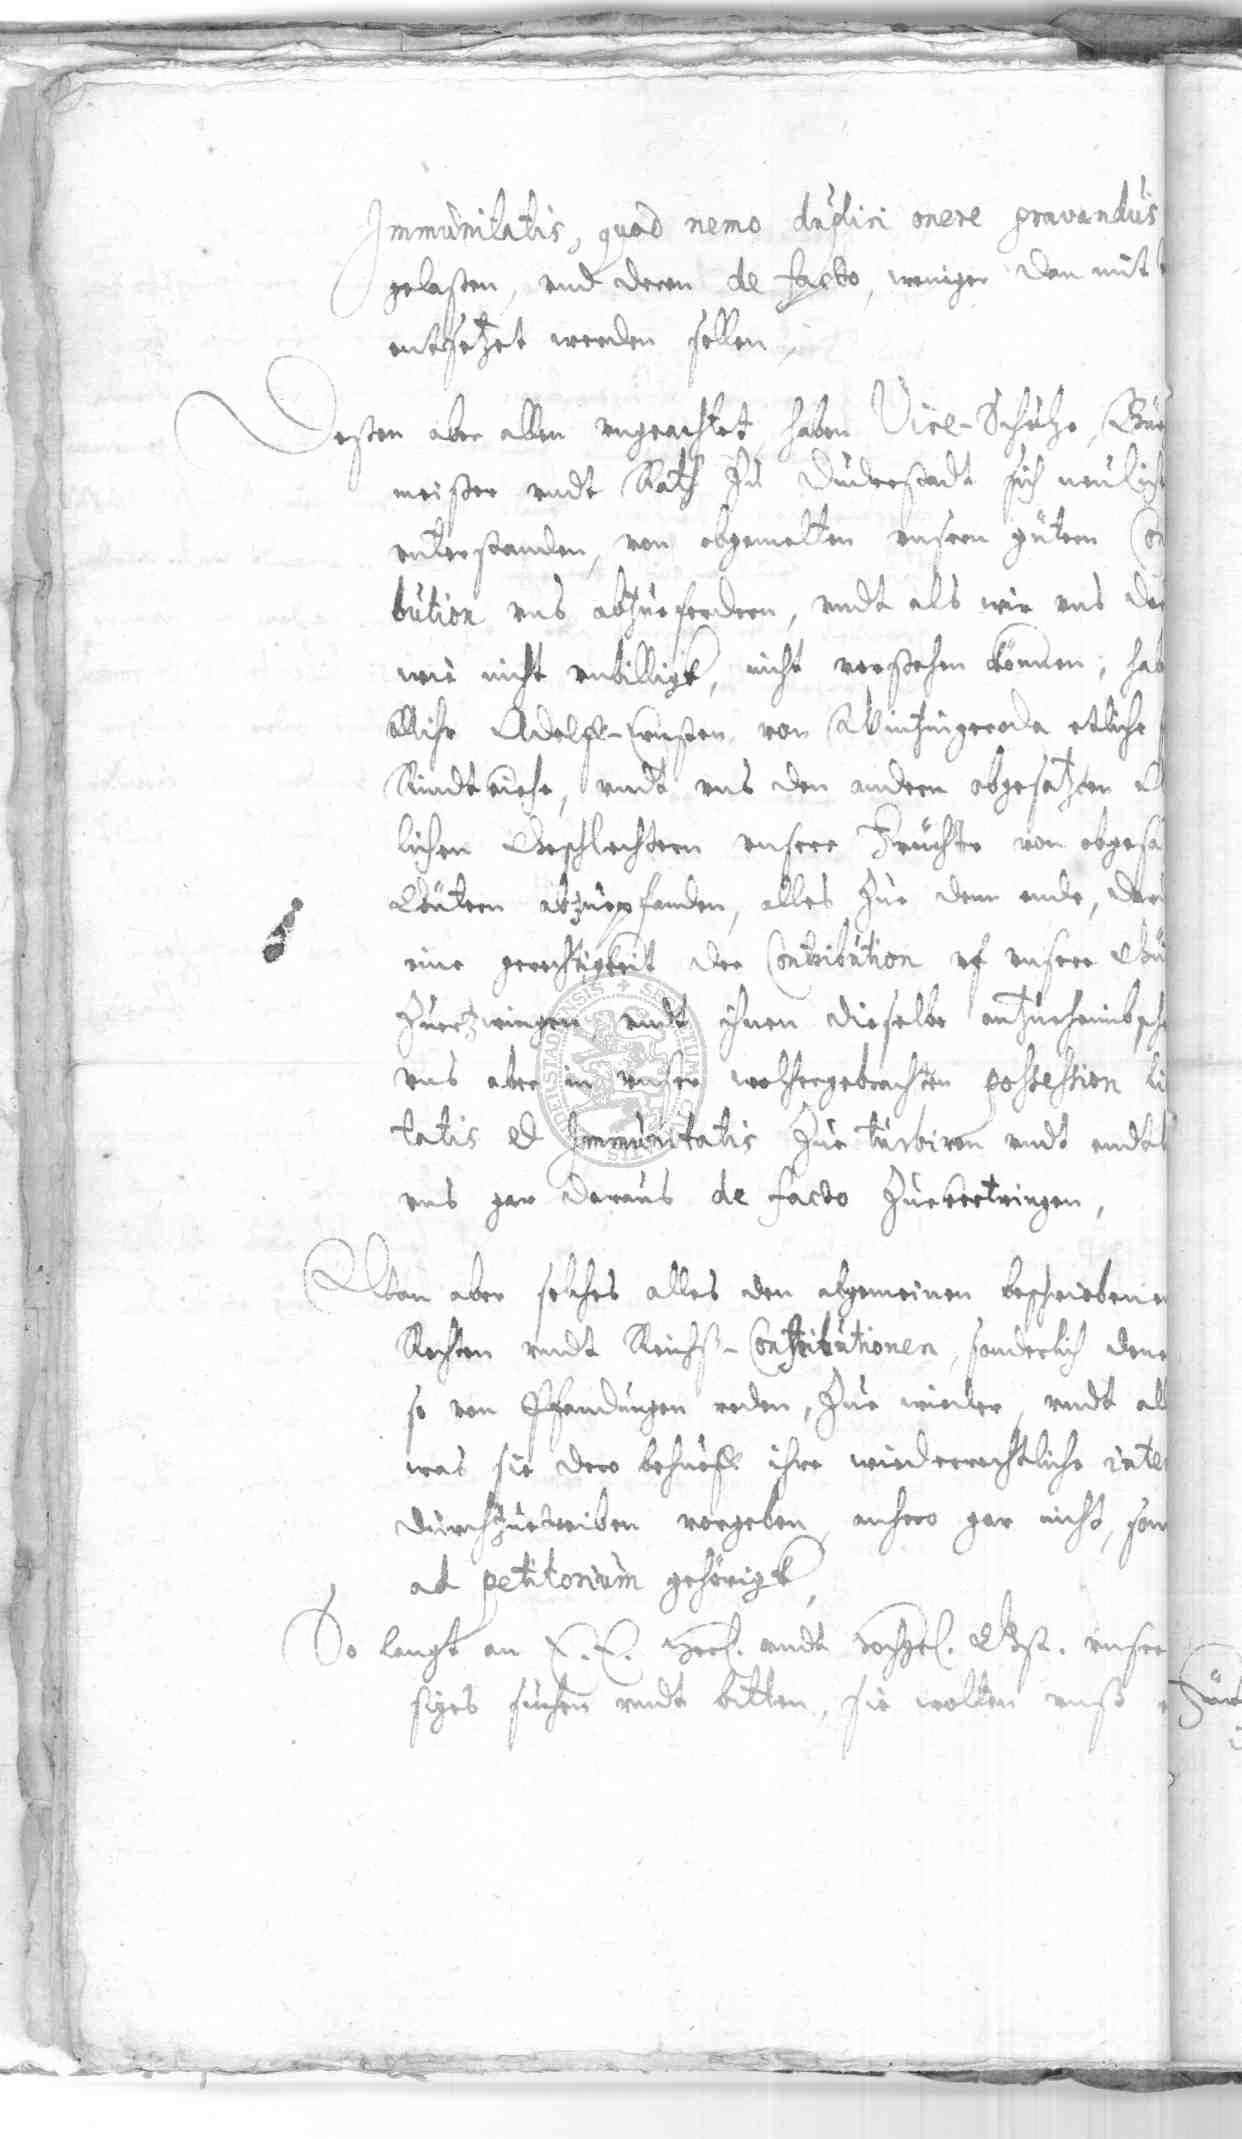 Immunitatis, quod nemo duplici onere gravandus
gelaßen, vnd deren de facto, weniger dan mit
entsetzet werden sollen,
Deßen aber allen vngeachtet, haben Vice-Schultze, Bür
meister vndt Rath Zu Duderstadt sich neulich
vnterstanden, von obgemelten vnsern gütern Con
bution vns abzuefordern, vndt als wir vns da
wie nicht vnbilligk, nicht verstehen können, hab
Mihr Adolff-Ernsten von Wintzingeroda etliche
Rindtviehe, vndt vns den andern obgesatzten A
lichen Geschlechtern vnsere Früchte von obgesa
Gütern abzuepfanden, alles Zue dem ende, da
eine gerechtigkeit der Contribution vf vnsere Gü
Zuerzwingen, vndt ihnen dieselbe anzueheimbsche
vns aber in vnser wolhergebrachten possession li
tatis et Immunitatis Zue turbiren vndt endt
vns gar daraus de facto Zueverdringen,
Wan aber solches alles den algemeinen beschriebenen
Rechten vndt Reichß-Constitutionen, sonderlich dene
so von Pfandungen reden, Zue wieder, vndt al
was sie dero behueff ihre wiederrechtliche inte
durchzuetreiben vorgeben, anhero gar nicht, son
ad petitorium gehörigk,
So langt an E. E. vndt Gst. vnser
siges suchen vndt bitten, sie wolten vnß